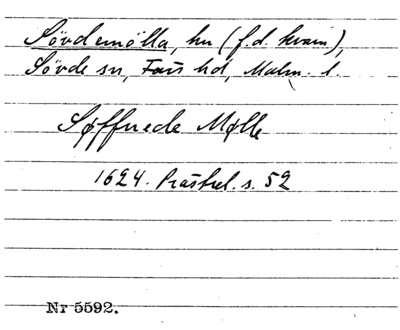 Sövdemölla, hn (f.d. kvarn),
Sövde sn, Färs hd, Malm. l.
Søffuede Mølle
1624. Prästrel. s. 52
Nr 5592.